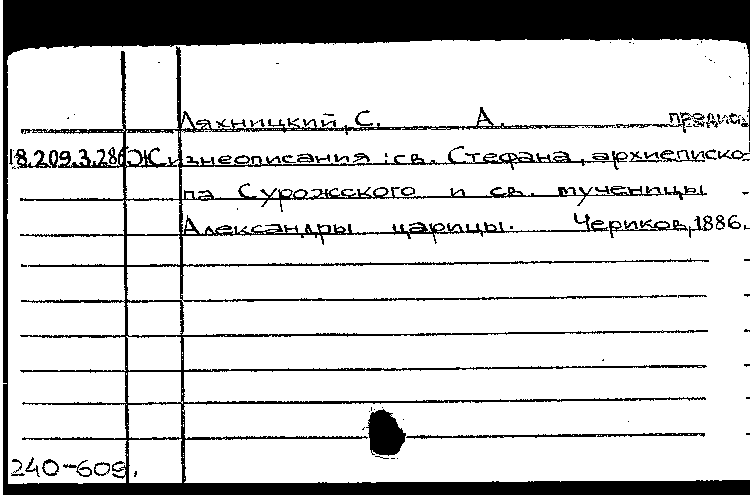 Ляхницкий, С. А. предис.
18.209.3.286 Жизнеописания : св. Стефана, архиписко-
па Сурожского и св. мученицы
Александры царицы. Чериков, 1886.
240-609.